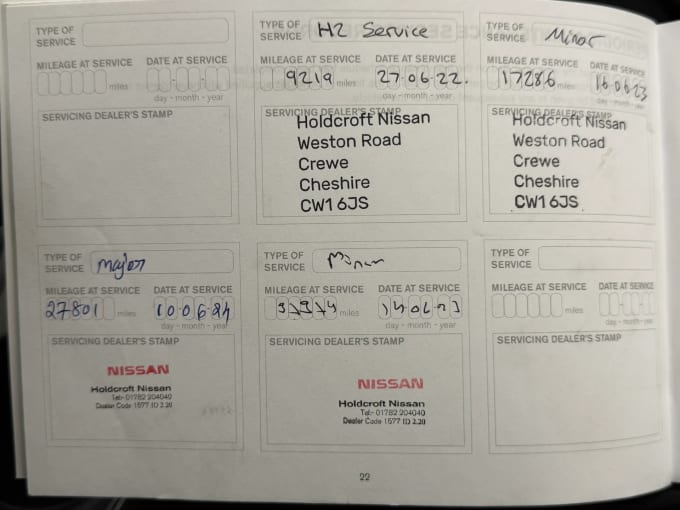 TYPE OF SERVICE
MILEAGE AT SERVICE DATE AT SERVICE
miles
day - month - year
SERVICING DEALER'S STAMP
TYPE OF SERVICE H2 Service
MILEAGE AT SERVICE DATE AT SERVICE
9219 miles 27-06-22.
day - month - year
SERVICING DEALER'S STAMP
Holdcroft Nissan
Weston Road
Crewe
Cheshire
CW1 6JS
TYPE OF SERVICE Minor
MILEAGE AT SERVICE DATE AT SERVICE
17286 miles 16-06-23
day - month - year
SERVICING DEALER'S STAMP
Holdcroft Nissan
Weston Road
Crewe
Cheshire
CW1 6JS
TYPE OF SERVICE Major
MILEAGE AT SERVICE DATE AT SERVICE
27801 miles 10-06-24
day - month - year
SERVICING DEALER'S STAMP
NISSAN
Holdcroft Nissan
Tel:- 01782 204040
Dealer Code 1577 ID 2.20
TYPE OF SERVICE Minor
MILEAGE AT SERVICE DATE AT SERVICE
miles
day - month - year
SERVICING DEALER'S STAMP
NISSAN
Holdcroft Nissan
Tel:- 01782 204040
Dealer Code 1577 ID 2.20
TYPE OF SERVICE
MILEAGE AT SERVICE DATE AT SERVICE
miles
day - month - year
SERVICING DEALER'S STAMP
22